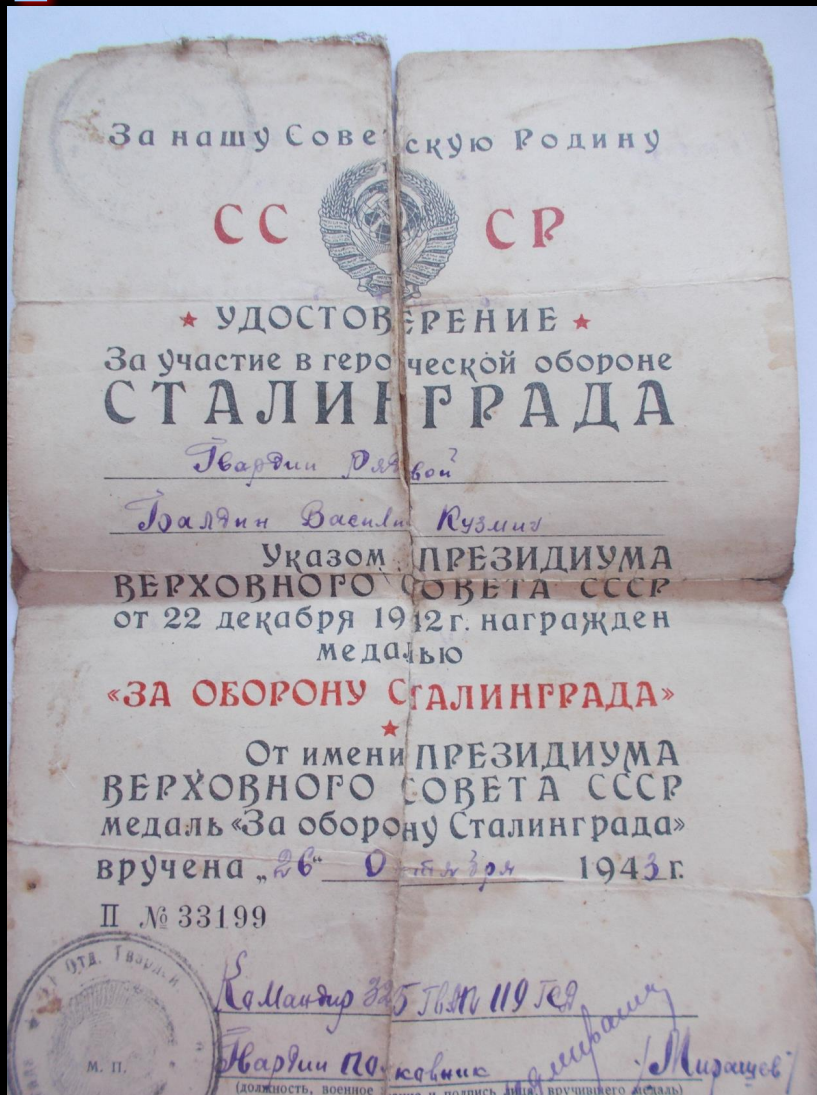 За нашу Советскую Родину
СССР
УДОСТОВЕРЕНИЕ
За участие в героической обороне
СТАЛИНГРАДА
Гвардии Рядовой
Балдин Василий Кузмич
Указом ПРЕЗИДИУМА
ВЕРХОВНОГО СОВЕТА СССР
от 22 декабря 1942 г. награжден
медалью
«ЗА ОБОРОНУ СТАЛИНГРАДА»
От имени ПРЕЗИДИУМА
ВЕРХОВНОГО СОВЕТА СССР
медаль «За оборону Сталинграда»
вручена „26“ Октября 1943 г.
П № 33199
Отд. Гвардей
Командир 325 ГВАП 119 ГСД
М. П.
Гвардии Полковник
(должность, военное звание и подпись лица, вручившего медаль)